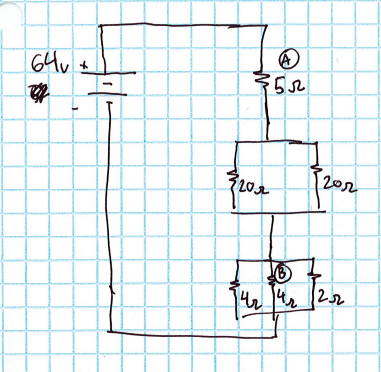 64v +
-
A
5Ω
20Ω 20Ω
B
4Ω 4Ω 2Ω